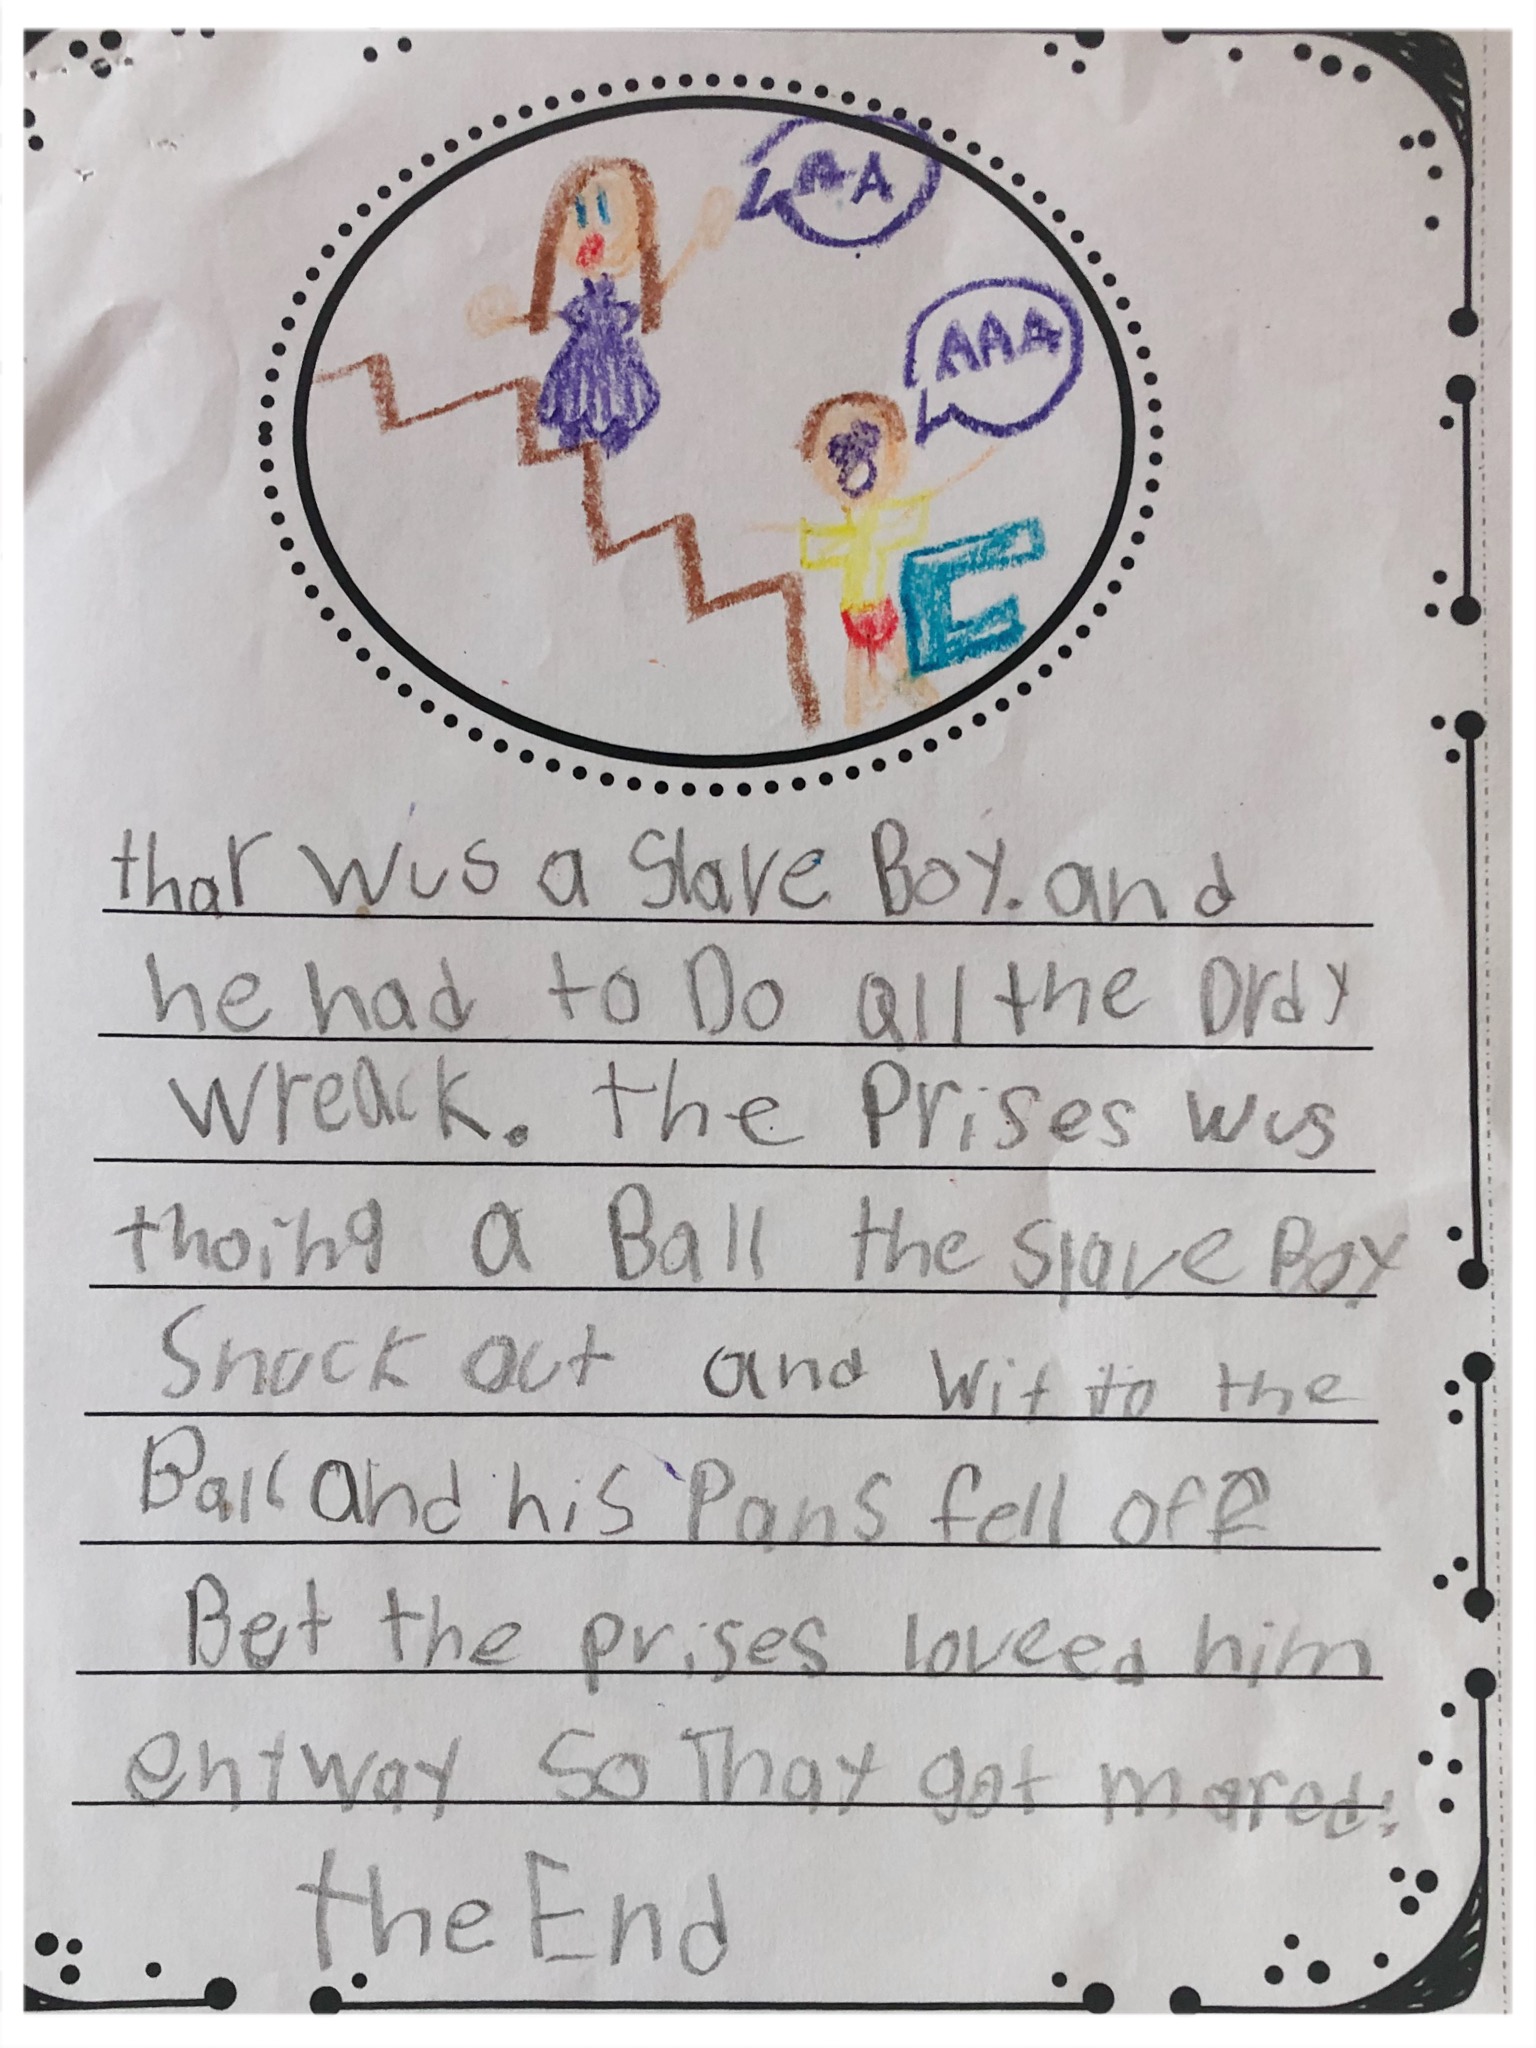 AA
AAA
thar wus a Slave Boy. and
he had to Do all the Drdy
wreack. the Prises wus
thoing a Ball the slave Boy
Snuck out and wit to the
Ball and his Pans fell off
But the prises loveed him
entway So Thay got mared.
the End